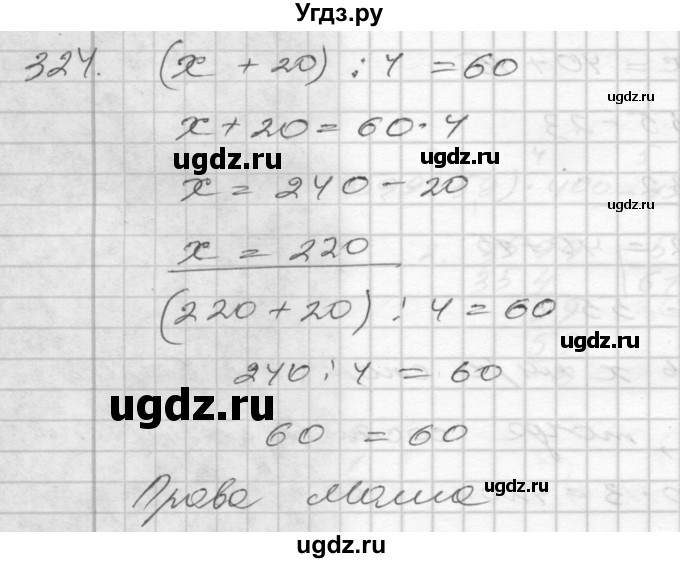 Угдз.ру
324. (x + 20) : 4 = 60
ugdz.ru
x + 20 = 60 · 4
ugdz.ru
ugdz.ru
x = 240 - 20
ugdz.ru
x = 220
(220 + 20) : 4 = 60
ugdz.ru
240 : 4 = 60
ugdz.ru
60 = 60
Права Маша
ugdz.ru
ugdz.ru